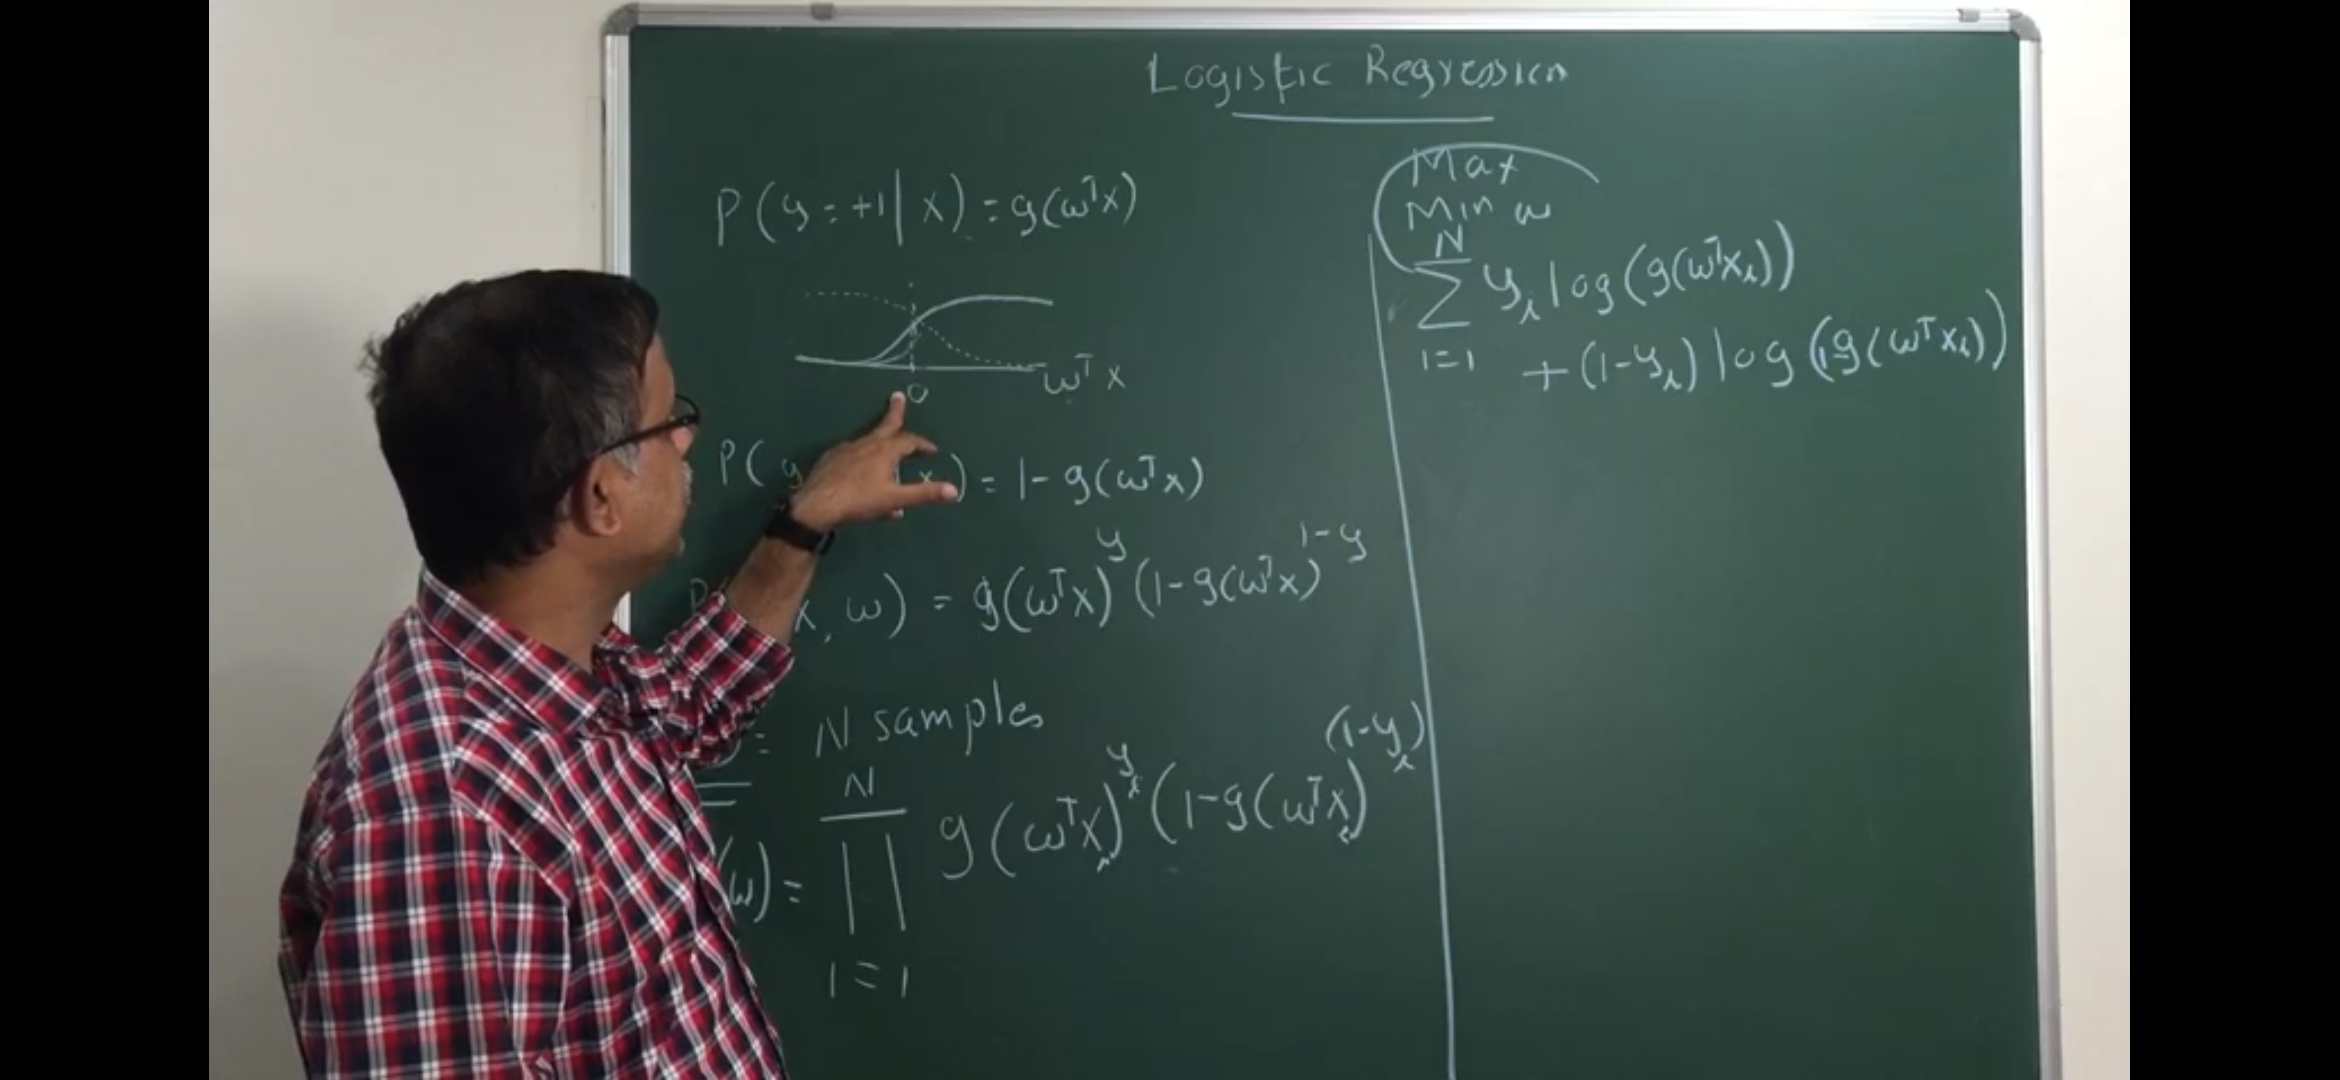 Logistic Regression
P(y=+1|x) = g(ωᵀx)
0
ωᵀx
P(y x) = 1-g(ωᵀx)
x, ω) = g(ωᵀx)^y (1-g(ωᵀx)^1-y
= N samples
N
(ω) = ∏ g(ωᵀxᵢ)^yᵢ (1-g(ωᵀxᵢ)^(1-yᵢ)
i=1
Max
Min ω
N
∑ yᵢ log(g(ωᵀxᵢ))
i=1 +(1-yᵢ) log(1-g(ωᵀxᵢ))